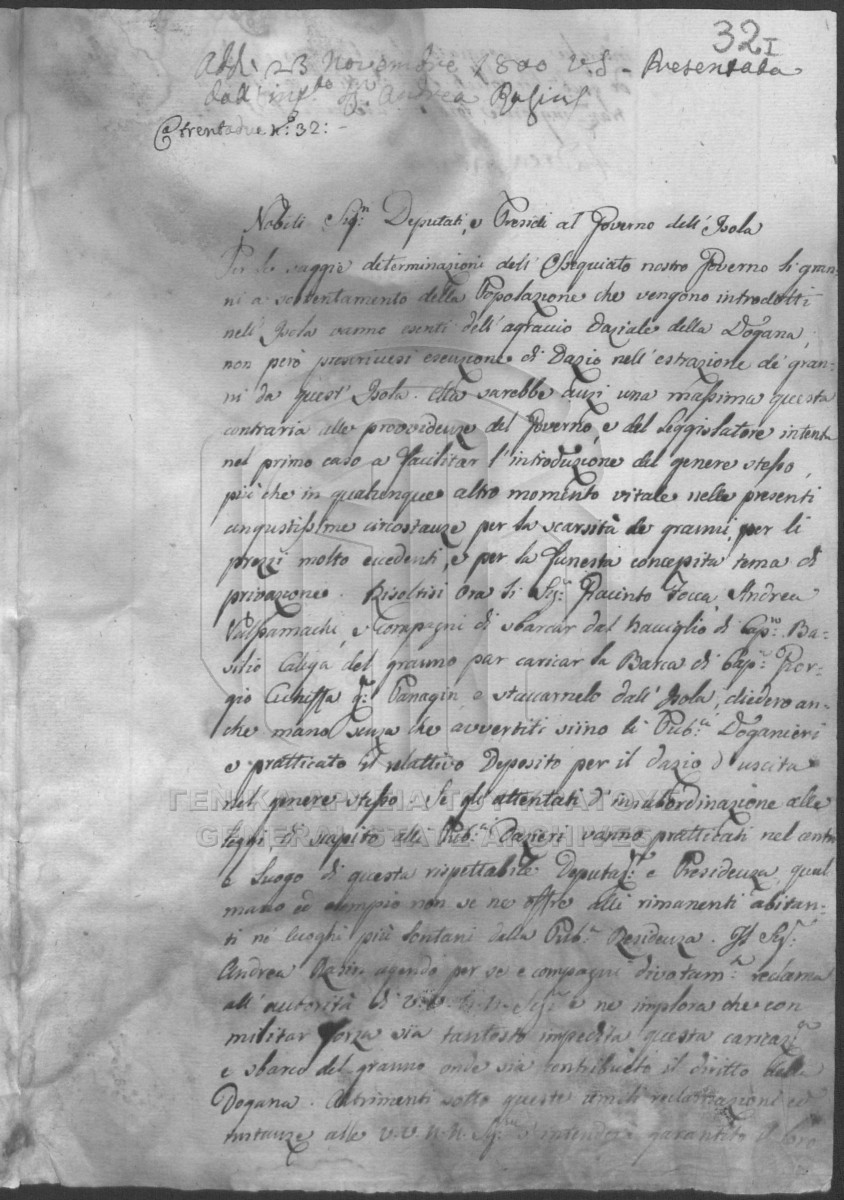 32 I
Add: 23 Novembre 1800 V.S. - Presentada
dall' inf.to Sr. Andrea Rasin
C.a trentadue No. 32: -
Nobili Sigri. Deputati, e Presidi al Governo dell' Isola
Per le saggie determinazioni dell' Ossequiato nostro Governo li gran-
ni a sostentamento della Popolazione che vengono introdotti
nell' Isola vanno esenti dell' aggravio Daziale della Dogana,
non però prescrivesi esenzione di Dazio nell' estrazione de' gran-
ni da quest' Isola. Ella sarebbe anzi una massima questa
contraria alle provvidenze del Governo, e del Leggislatore intenta
nel primo caso a facilitar l' introduzione del genere stesso,
più che in qualunque altro momento vitale nelle presenti
angustissime circostanze per la scarsità de granni, per li
prezzi molto eccedenti, e per la funesta concepita tema di
privazione. Risoltisi ora li Sigri. Giacinto Zocca, Andrea
Valsamachi, e Compagni di sbarcar dal Naviglio di Capno. Ba-
silio Caliga del granno par caricar la Barca di Capno. Gior-
gio qm. Panagin e staccarnelo dall' Isola, diedero an-
che mano senza che avvertiti siino li Pubci. Doganieri
e pratticato il relattivo Deposito per il dazio d' uscita
nel genere stesso. Se gli attentati d' insubordinazione alle
leggi di scapito alli Pubci. Dazieri vanno pratticati nel centro
e luogo di questa rispettabile Deputazne. e Presidenza, qual
mano ed esempio non se ne offre alli rimanenti abitan-
ti ne' luoghi più lontani della Pubca. Residenza. Il Sigr.
Andrea Rasin agendo per se e compagni divotamte. reclama
all' autorità di V.V. N.N. Sigrie e ne implora che con
militar forza sia tantosto impedita questa caricazne.
e sbarco del granno onde sia contribuito il diritto della
Dogana. Altrimenti sotto queste umili reclamazioni ed
instanze alle V.V. N.N. Sigrie s' intenderà garantito il loro
ΓΕΝΙΚΑ ΑΡΧΕΙΑ ΤΟΥ ΚΡΑΤΟΥΣ
GENERAL STATE ARCHIVES